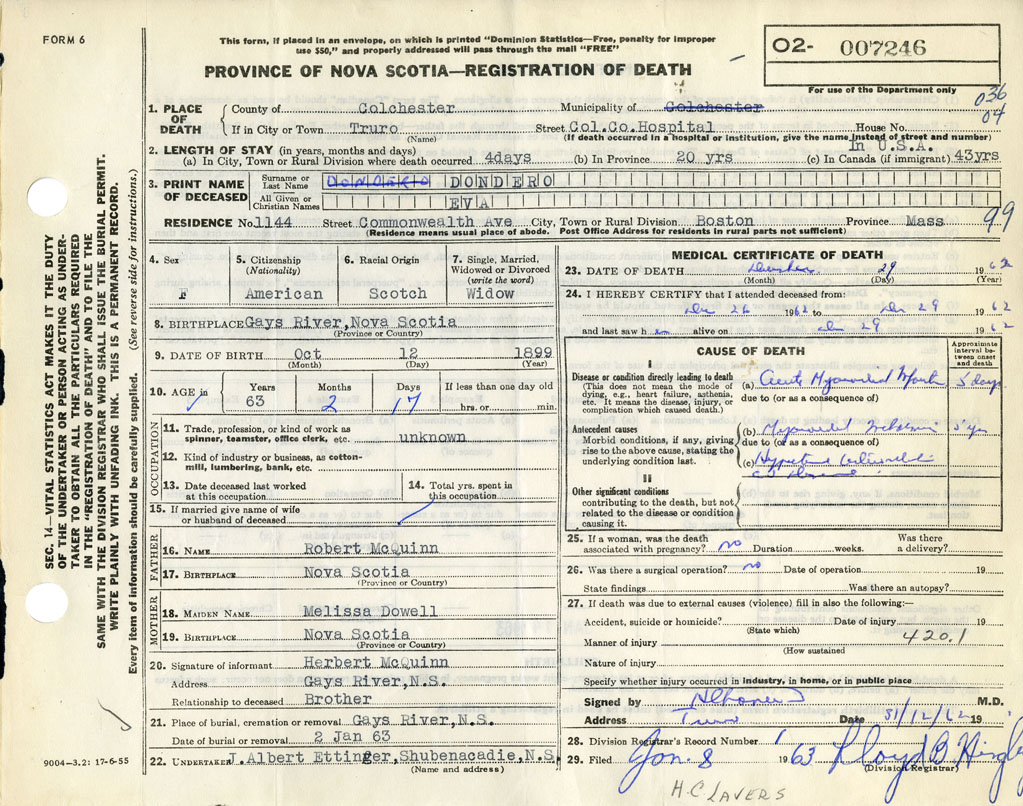 FORM 6
This form, if placed in an envelope, on which is printed "Dominion Statistics—Free, penalty for improper
use $50," and properly addressed will pass through the mail "FREE"
O2- 007246
PROVINCE OF NOVA SCOTIA—REGISTRATION OF DEATH
For use of the Department only
036
04
1. PLACE OF DEATH County of Colchester Municipality of Colchester
If in City or Town Truro (Name) Street Col.Co.Hospital House No.
(If death occurred in a hospital or institution, give the name instead of street and number)
2. LENGTH OF STAY (in years, months and days) In U.S.A.
(a) In City, Town or Rural Division where death occurred 4days (b) In Province 20 yrs (c) In Canada (if immigrant) 43yrs
3. PRINT NAME OF DECEASED Surname or Last Name DONDERO
All Given or Christian Names EVA
RESIDENCE No. 1144 Street Commonwealth Ave City, Town or Rural Division Boston Province Mass
99
(Residence means usual place of abode. Post Office Address for residents in rural parts not sufficient)
4. Sex F
5. Citizenship (Nationality) American
6. Racial Origin Scotch
7. Single, Married, Widowed or Divorced (write the word) Widow
8. BIRTHPLACE Gays River,Nova Scotia
(Province or Country)
9. DATE OF BIRTH Oct 12 1899
(Month) (Day) (Year)
10. AGE in Years 63 Months 2 Days 17 If less than one day old hrs. or min.
OCCUPATION
11. Trade, profession, or kind of work as
spinner, teamster, office clerk, etc. unknown
12. Kind of industry or business, as cotton-
mill, lumbering, bank, etc.
13. Date deceased last worked
at this occupation
14. Total yrs. spent in
this occupation
15. If married give name of wife
or husband of deceased
FATHER
16. NAME Robert McQuinn
17. BIRTHPLACE Nova Scotia
(Province or Country)
MOTHER
18. MAIDEN NAME Melissa Dowell
19. BIRTHPLACE Nova Scotia
(Province or Country)
20. Signature of informant Herbert McQuinn
Address Gays River,N.S.
Relationship to deceased Brother
21. Place of burial, cremation or removal Gays River,N.S.
Date of burial or removal 2 Jan 63
22. UNDERTAKER J.Albert Ettinger,Shubenacadie,N.S.
(Name and address)
MEDICAL CERTIFICATE OF DEATH
23. DATE OF DEATH 29 1962
(Month) (Day) (Year)
24. I HEREBY CERTIFY that I attended deceased from:
Dec 26 1962 to Dec 29 1962
and last saw h alive on Dec 29 1962
CAUSE OF DEATH
Approximate interval be-tween onset and death
I
Disease or condition directly leading to death
(This does not mean the mode of
dying, e.g., heart failure, asthenia,
etc. It means the disease, injury, or
complication which caused death.)
(a) Acute Myocardial 5 days
due to (or as a consequence of)
Antecedent causes
Morbid conditions, if any, giving
rise to the above cause, stating the
underlying condition last.
(b) Myocardial 5 yrs
due to (or as a consequence of)
(c)
II
Other significant conditions
contributing to the death, but not
related to the disease or condition
causing it.
25. If a woman, was the death
associated with pregnancy? no Duration weeks. Was there
a delivery?
26. Was there a surgical operation? no Date of operation 19
State findings Was there an autopsy?
27. If death was due to external causes (violence) fill in also the following:—
Accident, suicide or homicide? Date of injury 19
(State which)
420.1
Manner of injury
(How sustained
Nature of injury
Specify whether injury occurred in industry, in home, or in public place
Signed by M.D.
Address Truro Date 31/12/62 19
28. Division Registrar's Record Number 1
29. Filed Jan. 8 1963 Lloyd B
(Division Registrar)
H.C LAVERS
SEC. 14—VITAL STATISTICS ACT MAKES IT THE DUTY
OF THE UNDERTAKER OR PERSON ACTING AS UNDER-
TAKER TO OBTAIN ALL THE PARTICULARS REQUIRED
IN THE "REGISTRATION OF DEATH" AND TO FILE THE
SAME WITH THE DIVISION REGISTRAR WHO SHALL ISSUE THE BURIAL PERMIT.
WRITE PLAINLY WITH UNFADING INK. THIS IS A PERMANENT RECORD.
Every item of information should be carefully supplied. (See reverse side for instructions.)
9004-3.2: 17-6-55